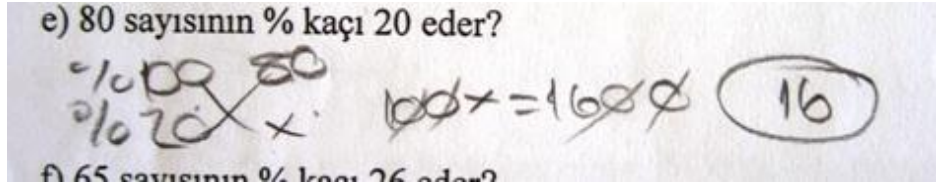 e) 80 sayısının % kaçı 20 eder?
%100 80
%20 x
100x=1600 16
f) 65 sayısının % kaçı 26 eder?